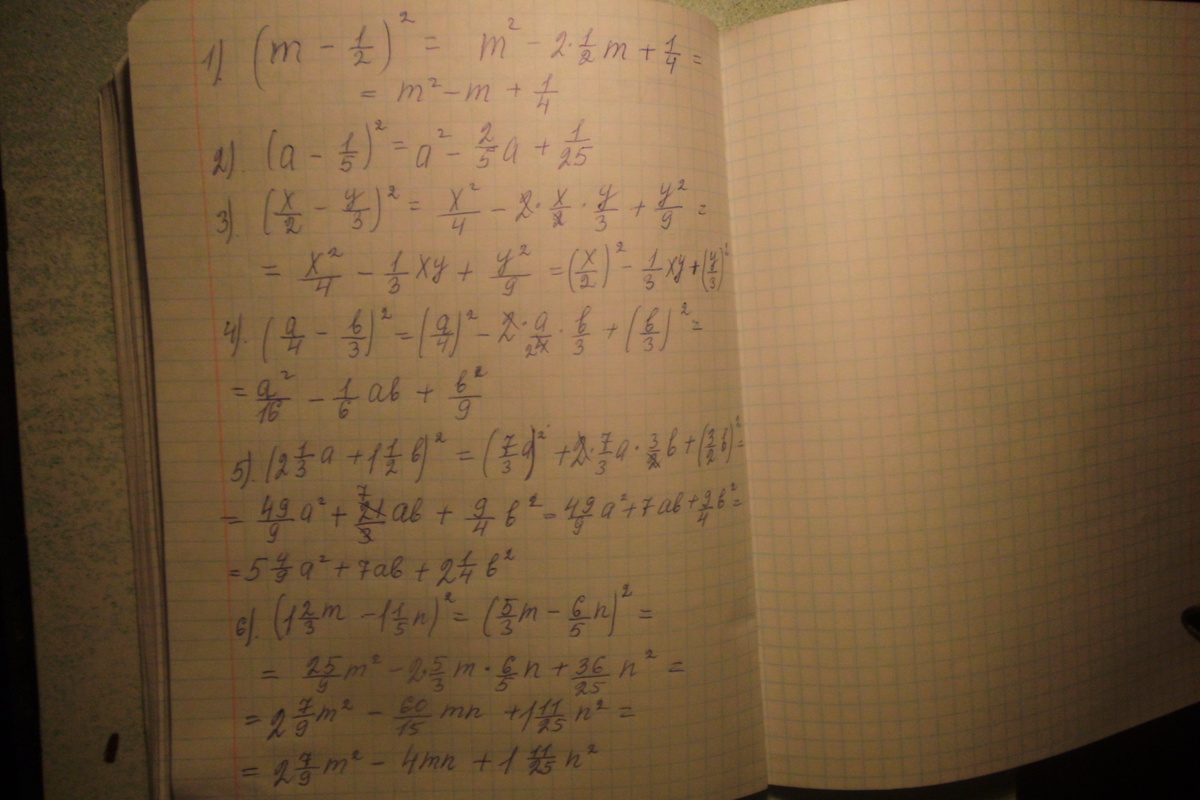 1) (m - 1/2)² = m² - 2·1/2 m + 1/4 =
= m² - m + 1/4
2) (a - 1/5)² = a² - 2/5 a + 1/25
3). (x/2 - y/3)² = x²/4 - 2·x/2 · y/3 + y²/9 =
= x²/4 - 1/3 xy + y²/9 = (x/2)² - 1/3 xy + (y/3)²
4). (a/4 - в/3)² = (a/4)² - 2·a/4 · в/3 + (в/3)² =
= a²/16 - 1/6 aв + в²/9
5). (2 1/3 a + 1 1/2 в)² = (7/3 a)² + 2·7/3 a · 3/2 в + (3/2 в)² =
= 49/9 a² + 21/3 aв + 9/4 в² = 49/9 a² + 7aв + 9/4 в² =
= 5 4/9 a² + 7aв + 2 1/4 в²
6). (1 2/3 m - 1 1/5 n)² = (5/3 m - 6/5 n)² =
= 25/9 m² - 2·5/3 m · 6/5 n + 36/25 n² =
= 2 7/9 m² - 60/15 mn + 1 11/25 n² =
= 2 7/9 m² - 4mn + 1 11/25 n²